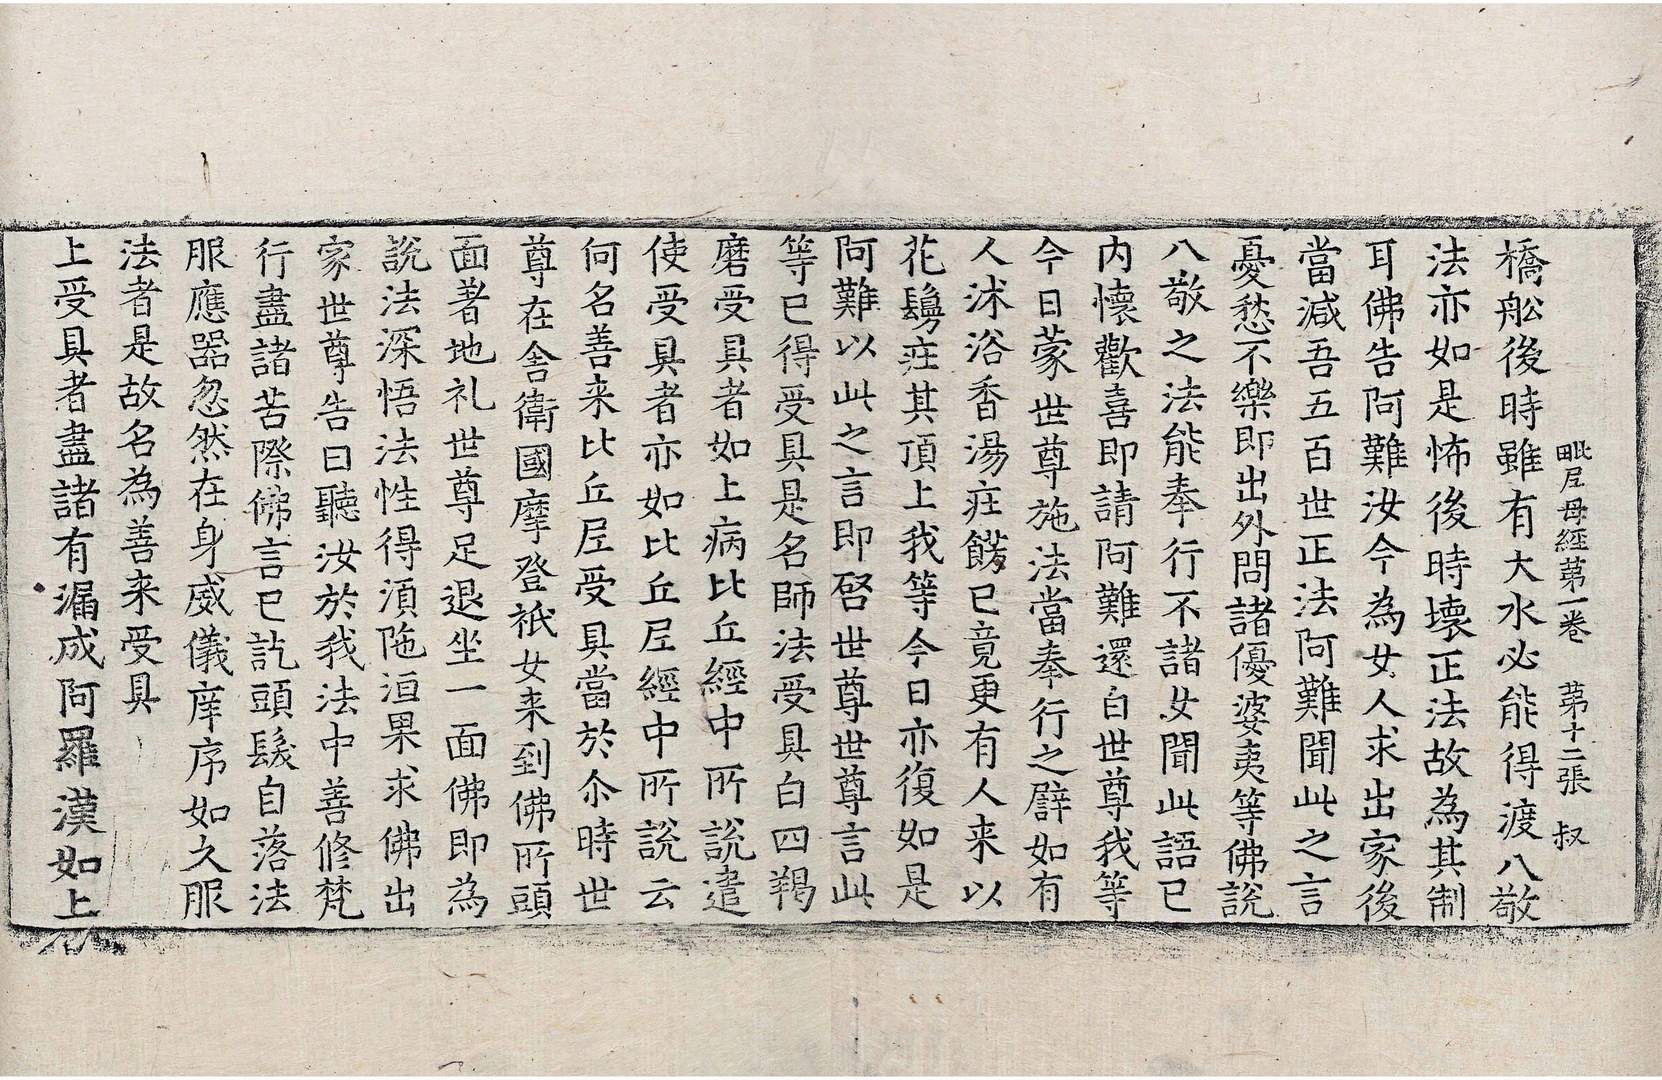 毗尼母經第一卷　第十二張　叔
橋舩後時雖有大水必能得渡八敬
法亦如是怖後時壞正法故為其制
耳佛告阿難汝今為女人求出家後
當減吾五百世正法阿難聞此之言
憂愁不樂即出外問諸優婆夷等佛說
八敬之法能奉行不諸女聞此語已
内懷歡喜即請阿難還白世尊我等
今日蒙世尊施法當奉行之譬如有
人沐浴香湯庄餝已竟更有人来以
花鬘庄其頂上我等今日亦復如是
阿難以此之言即啓世尊世尊言此
等已得受具是名師法受具白四羯
磨受具者如上病比丘經中所說遣
使受具者亦如比丘尼經中所說云
何名善来比丘尼受具當於尒時世
尊在舍衛國摩登祇女来到佛所頭
面著地礼世尊足退坐一面佛即為
說法深悟法性得湏陁洹果求佛出
家世尊告曰聽汝於我法中善修梵
行盡諸苦際佛言已訖頭髮自落法
服應器忽然在身威儀庠序如久服
法者是故名為善来受具
上受具者盡諸有漏成阿羅漢如上